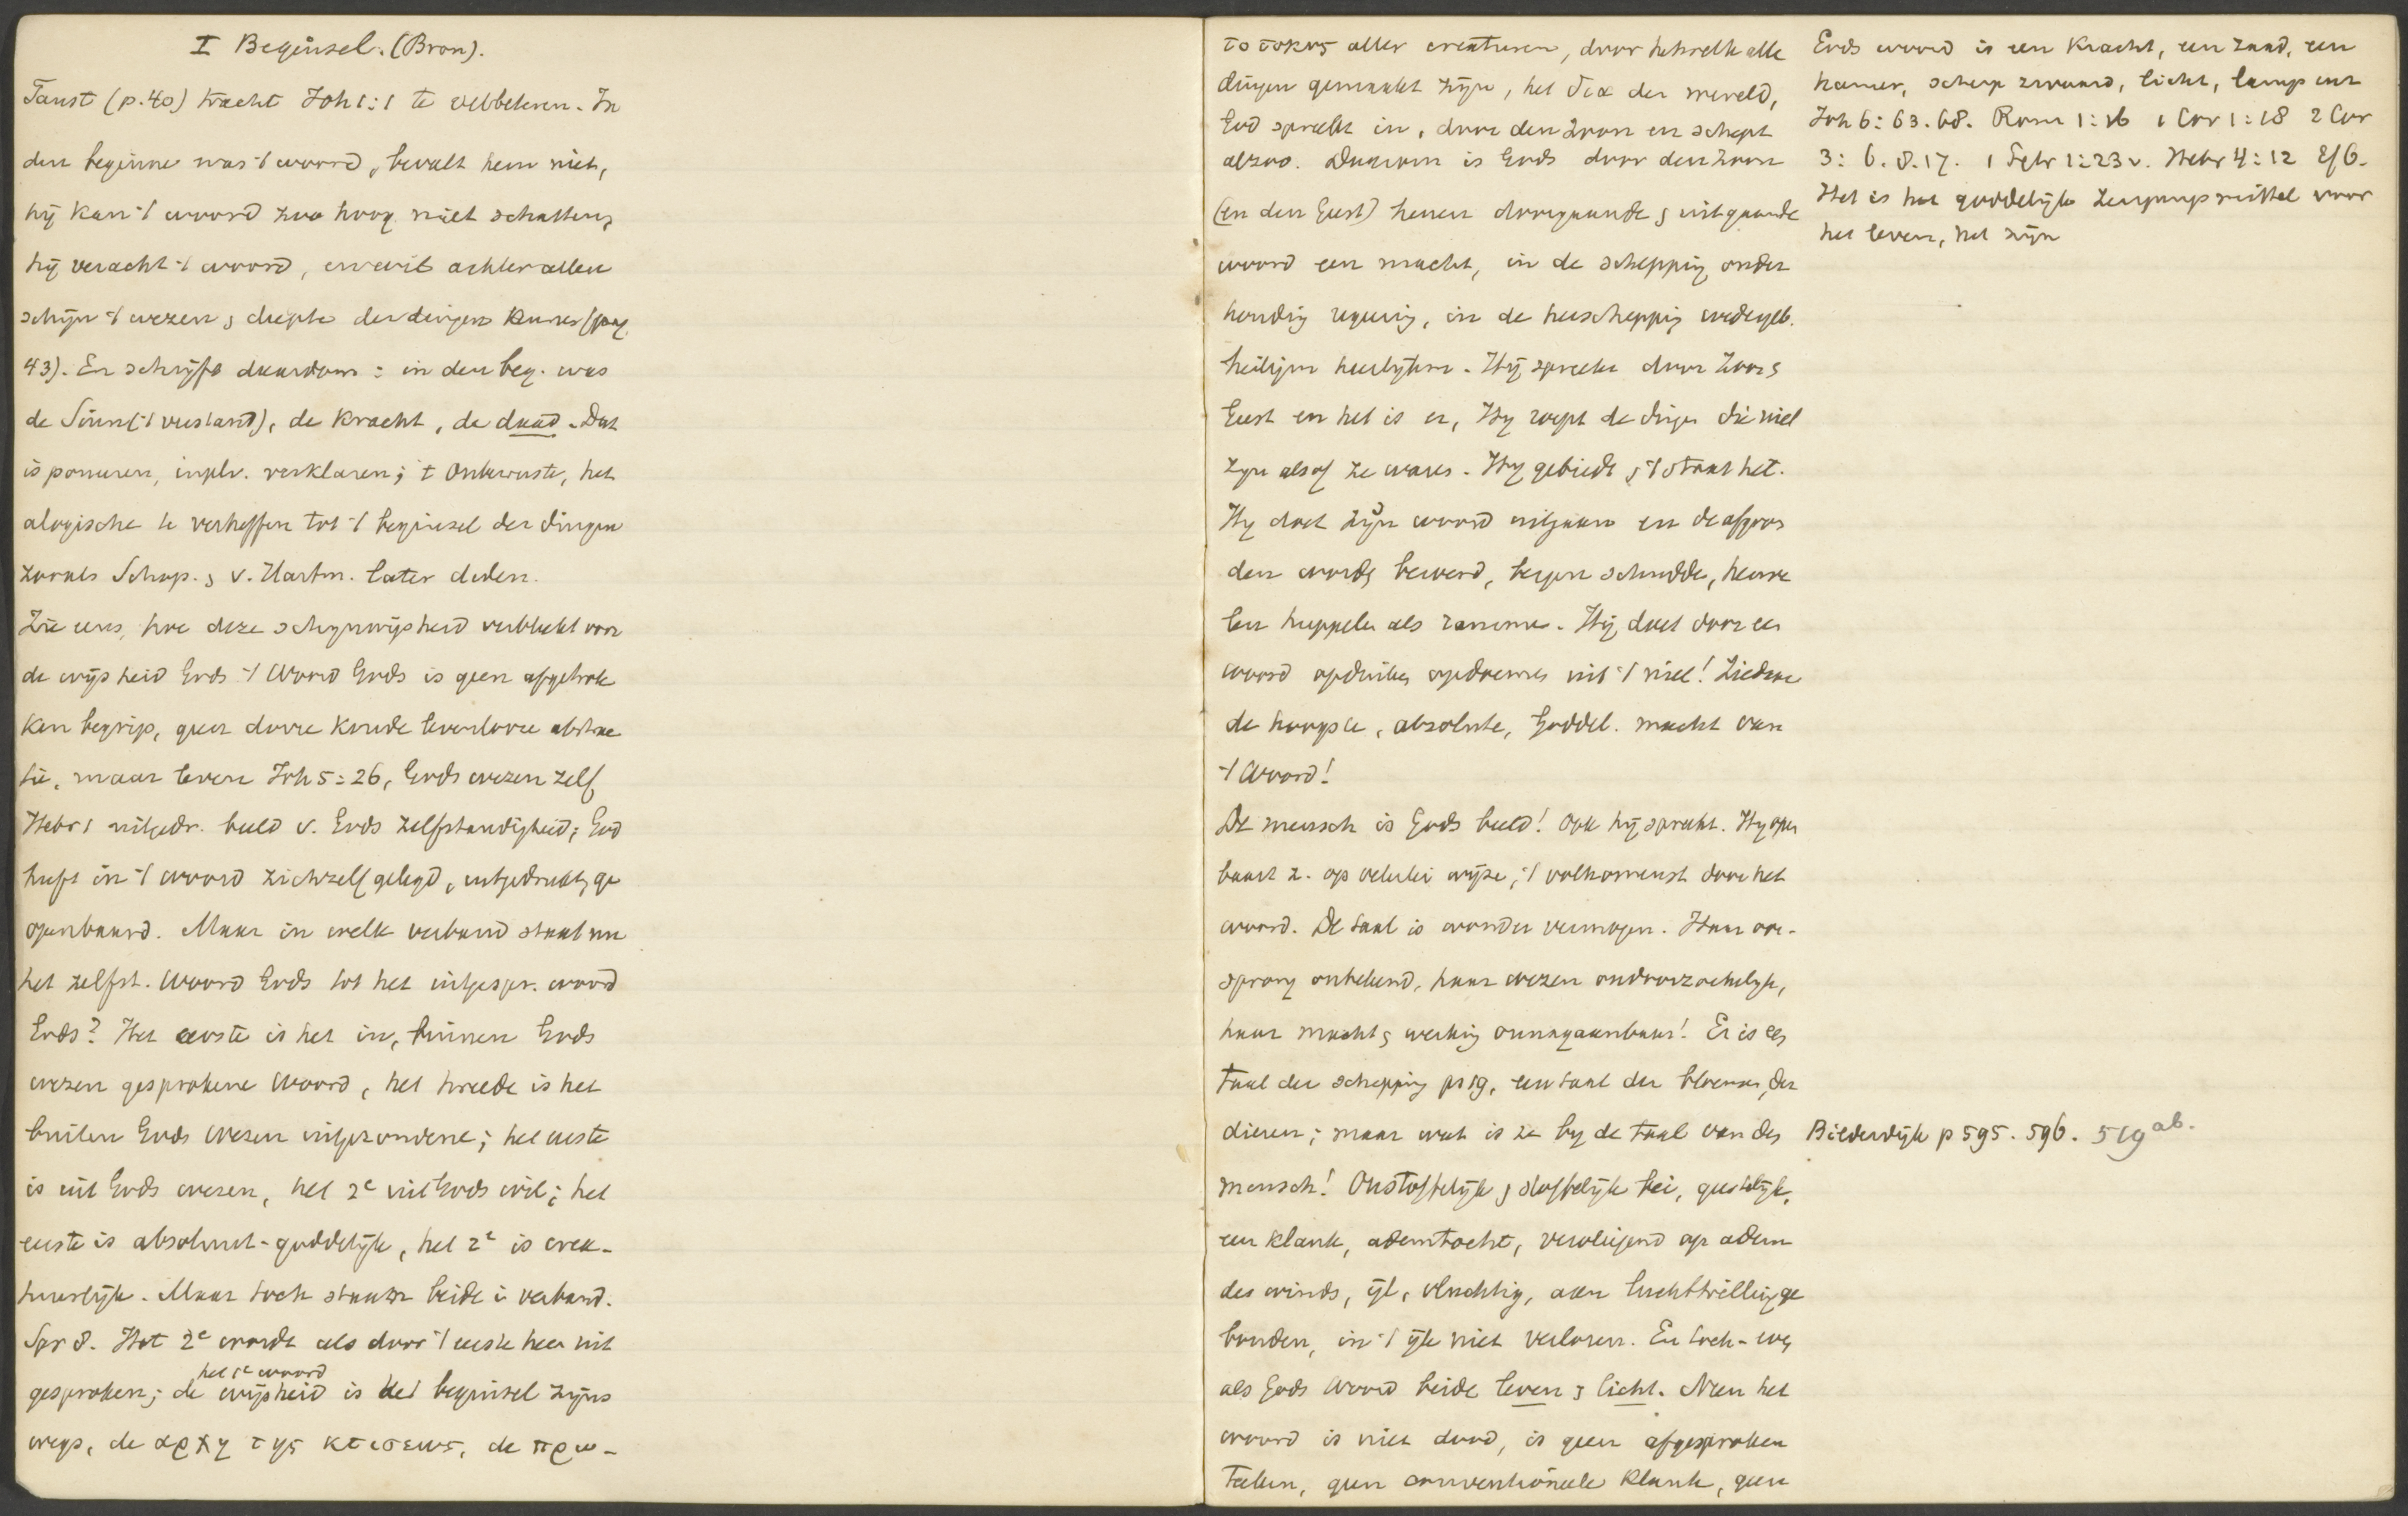 I Beginsel. (Bron).
Faust (p. 40) tracht Joh 1:1 te verbeteren. In
den beginne was 't woord, bevalt hem niet,
hij kan 't woord zoo hoog niet schatten,
hij veracht 't woord, en wil achter allen
schijn 't wezen & diepte der dingen kennen (pag.
43). En schrijft daarom: in den beg. was
de Sinn ('t verstand), de kracht, de daad. Dat
is poneren, inplv. verklaren; 't onbewuste, het
alogische te verheffen tot 't beginsel der dingen
zooals Schop. & v. Hartm. later deden.
Zie eens, hoe deze schijnwijsheid verbleekt voor
de wijsheid Gods 't Woord Gods is geen afgetrok
ken begrip, geen dorre koude levenlooze abstrac
tie, maar leven Joh 5:26, Gods wezen zelf
Hebr 1 uitgedr. beeld v. Gods zelfstandigheid; God
heeft in 't woord zichzelf gelegd, uitgedrukt, ge
openbaard. Maar in welk verband staat nu
het zelfst. Woord Gods tot het uitgespr. woord
Gods? Het eerste is het in, binnen Gods
wezen gesprokene Woord, het tweede is het
buiten Gods wezen uitgezondene; het eerste
is uit Gods wezen, het 2e uit Gods wil; het
eerste is absoluut-goddelijk, het 2e is crea-
tuurlijk. Maar toch staan beide in verband.
Spr 8. Het 2e wordt als door 't eerste heen uit
het 1e woord
gesproken; de wijsheid is het beginsel zijns
wegs, de αρχη της κτισεως, de πρω-
τοτοκος aller creaturen, door hetwelk alle
dingen gemaakt zijn, het δια der wereld,
God spreekt in, door den Zoon en schept
alzoo. Daarom is Gods door den Zoon
(en den Geest) henen doorgaande & uitgaande
woord een macht, in de schepping onder
houding regering, in de herscheppig wedergeb.
heiligm heerlijkm. Hij spreekt door Zoon &
Geest en het is er, Hij roept de dingen die niet
zijn alsof ze waren. Hij gebiedt & 't staat het.
Hij doet zijn woord uitgaan en de afgron
den wordt beroerd, bergen schudde, heuve
len huppelen als rammen. Hij doet door een
woord opduiken opdoemen uit 't niet! Ziedaar
de hoogste, absolute, Goddel. macht van
't Woord!
De mensch is Gods beeld! Ook hij spreekt. Hij open
baart z. op velerlei wijze, 't volkomenst door het
woord. De taal is wonder vermogen. Haar oor-
sprong onbekend, haar wezen ondoorzoekelijk,
haar macht & werking onnagaanbaar! Er is een
taal der schepping ps 19, een taal der bloemen, der
dieren; maar wat is ze by de taal van den
mensch! Onstoffelijk & stoffelijk bei, geestelijk,
een klank, ademtocht, vervliegend op adem
des winds, ijl, vluchtig, aan luchttrillingge
bonden, in 't ijle niet verloren. En toch - evenals
als Gods Woord beide leven & licht. Neen het
woord is niet dood, is geen afgesproken
teeken, geen conventioneele klank, geen
Gods woord is een kracht, een zaad, een
hamer, scherp zwaard, licht, lamp enz
Joh 6:63. 68. Rom 1:16 1 Cor 1:18 2 Cor
3: 6. 8. 17. 1 Petr 1:23 v. Hebr 4:12 Ef 6.
Het is het goddelijke zeugungsmittel voor
het leven, het zijn
Bilderdijk p 595. 596. 519 ab.